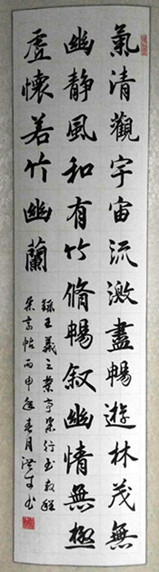 氣清觀宇宙流激盡暢遊林茂無
幽靜風和有竹脩暢叙幽情無極
虛懷若竹幽蘭
錄王羲之蘭亭集行书教程
集字帖丙申年春月